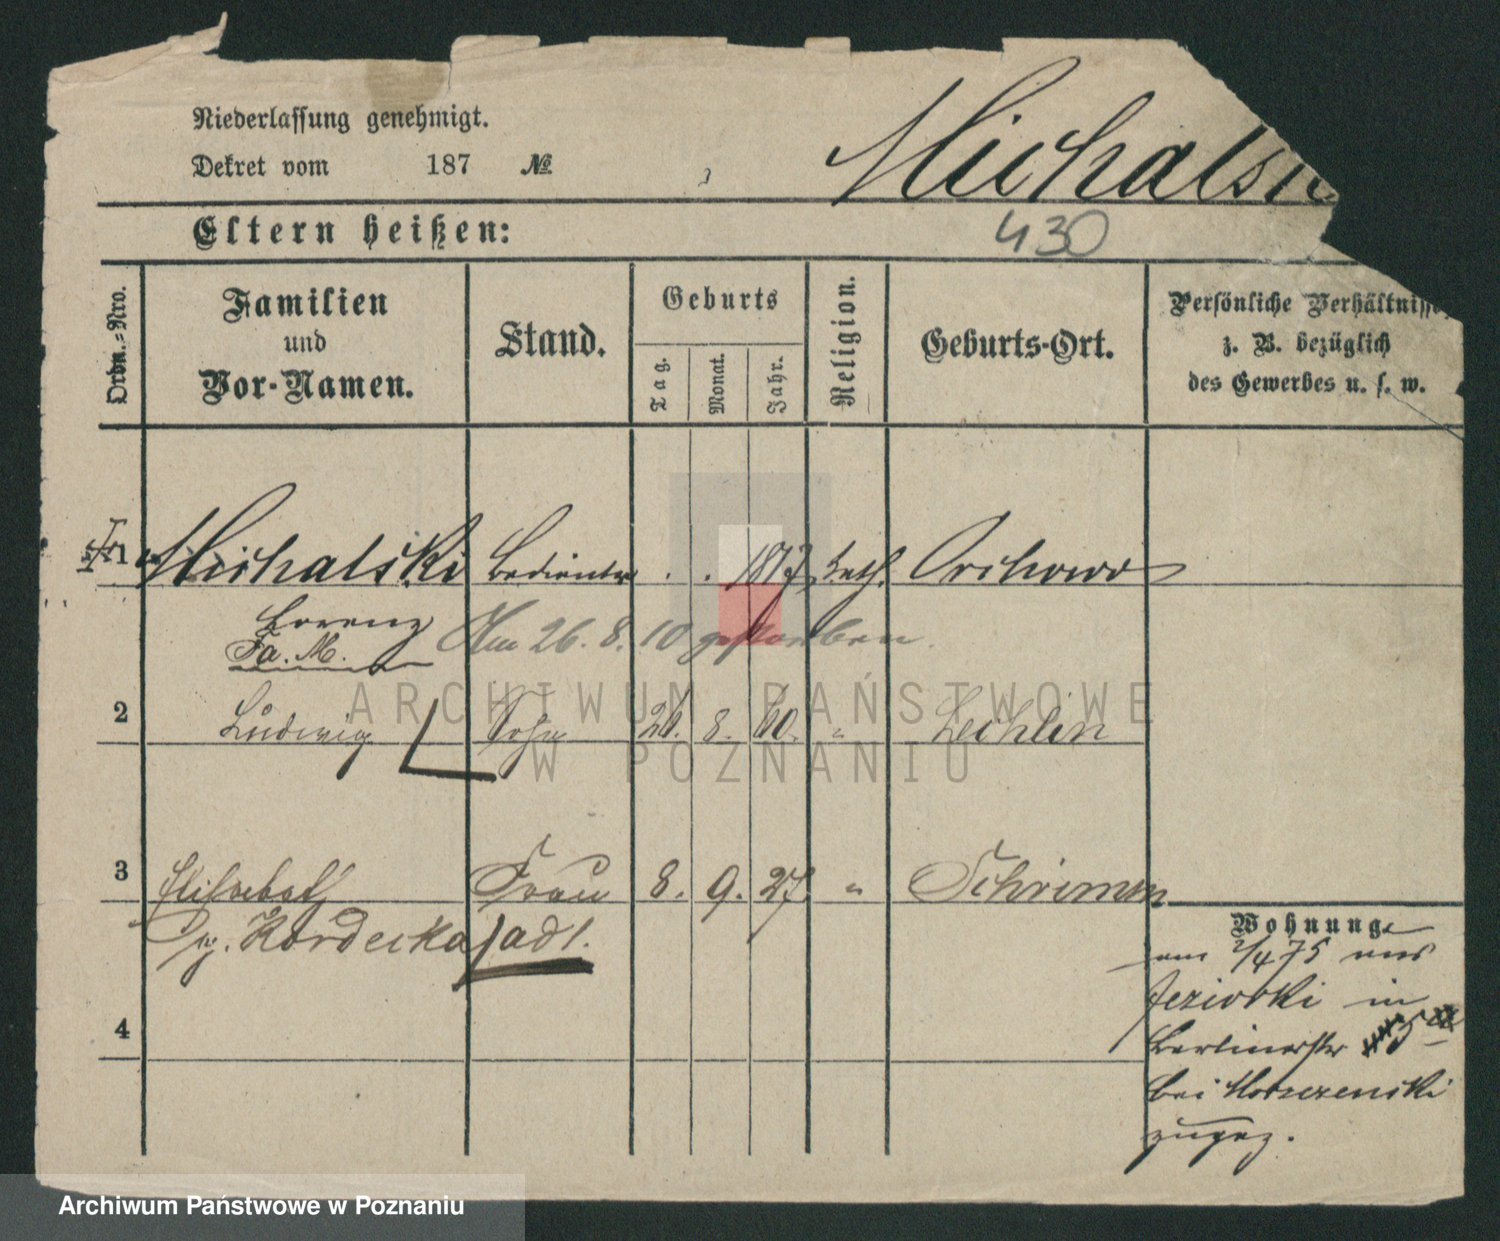 Niederlassung genehmigt.
Dekret vom 187 №
Michalsk
430
Eltern heißen:
Ordn.-Nro.
Familien
und
Vor-Namen.
Stand.
Geburts
Tag.
Monat.
Jahr.
Religion.
Geburts-Ort.
Persönliche Verhältnisse,
z. B. bezüglich
des Gewerbes u. s. w.
1 Michalski Bedienter . . 1817 kath. Orchowo
Lorenz Am 26. 8. 10 gestorben.
Fa. M.
2 Ludwig Sohn 26. 8. 60. "
3 Elisabeth Frau 8. 9. 27. " Schrimm
Kordecka
Wohnung
am 2/4 75 aus
in
Berlinerstr 5
bei
zugez.
4
ARCHIWUM PAŃSTWOWE
W POZNANIU
Archiwum Państwowe w Poznaniu